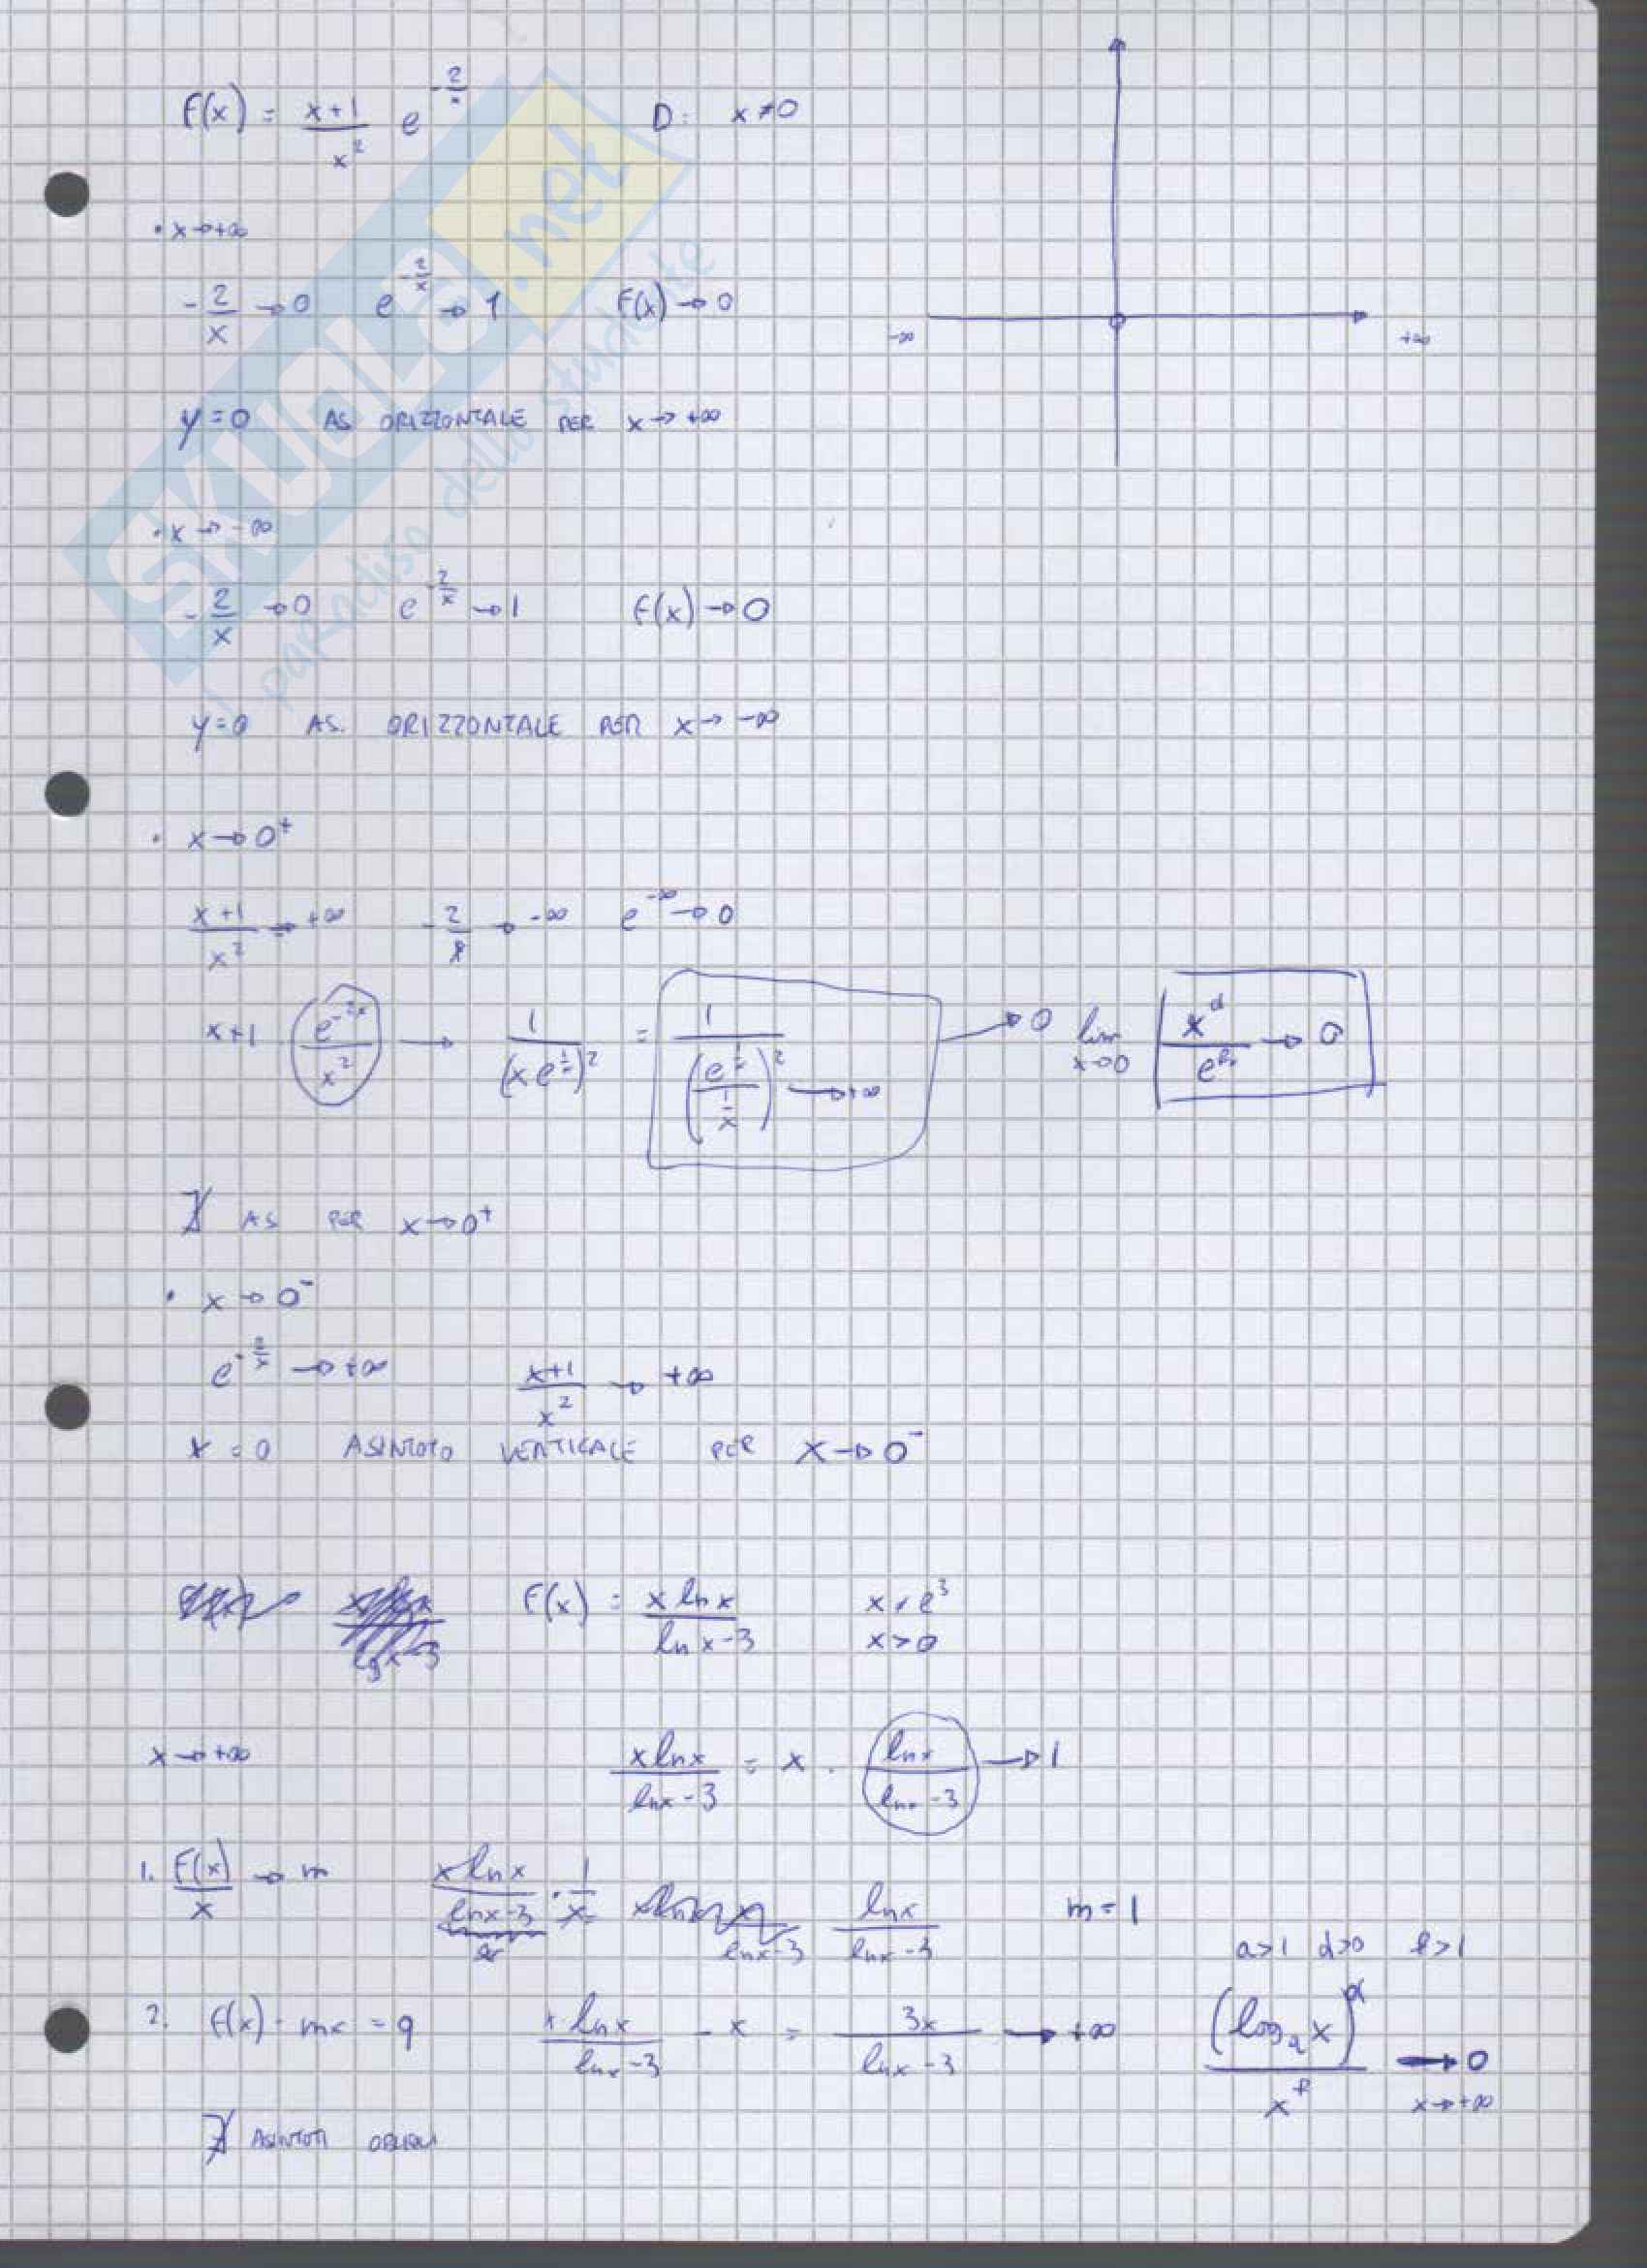 F(x) = \frac{x+1}{x^2} e^{-\frac{2}{x}} D: x≠0
• x→+∞
-\frac{2}{x} → 0 e^{-\frac{2}{x}} → 1 F(x) → 0
-∞ +∞
y=0 AS ORIZZONTALE PER x→+∞
• x→-∞
-\frac{2}{x} → 0 e^{-\frac{2}{x}} → 1 F(x) → 0
y=0 AS. ORIZZONTALE PER x→-∞
• x→0^+
\frac{x+1}{x^2} → +∞ -\frac{2}{x} → -∞ e^{-∞} → 0
x+1 \frac{e^{-2x}}{x^2} → \frac{1}{(x e^{\frac{1}{x}})^2} = \frac{1}{(\frac{e^{\frac{1}{x}}}{\frac{1}{x}})^2 → +∞} → 0 lim_{x→0} → 0
∄ AS PER x→0^+
• x→0^-
e^{-\frac{2}{x}} → +∞ \frac{x+1}{x^2} → +∞
x = 0 ASINTOTO VERTICALE PER x→0^-
F(x) = \frac{x ln x}{ln x-3} x≠e^3
x>0
x→+∞ \frac{x ln x}{ln x-3} = x · \frac{ln x}{ln x-3} → 1
1. \frac{F(x)}{x} → m \frac{x ln x}{ln x-3} · \frac{1}{x} = \frac{ln x}{ln x-3} m=1
a>1 α>0 β>1
2. F(x) - mx = q \frac{x ln x}{ln x-3} - x = \frac{3x}{ln x-3} → +∞ \frac{(log_a x)^α}{x^β} → 0
x→+∞
∄ ASINTOTI OBLIQUI
SKUOLA.net
il paradiso dello studente